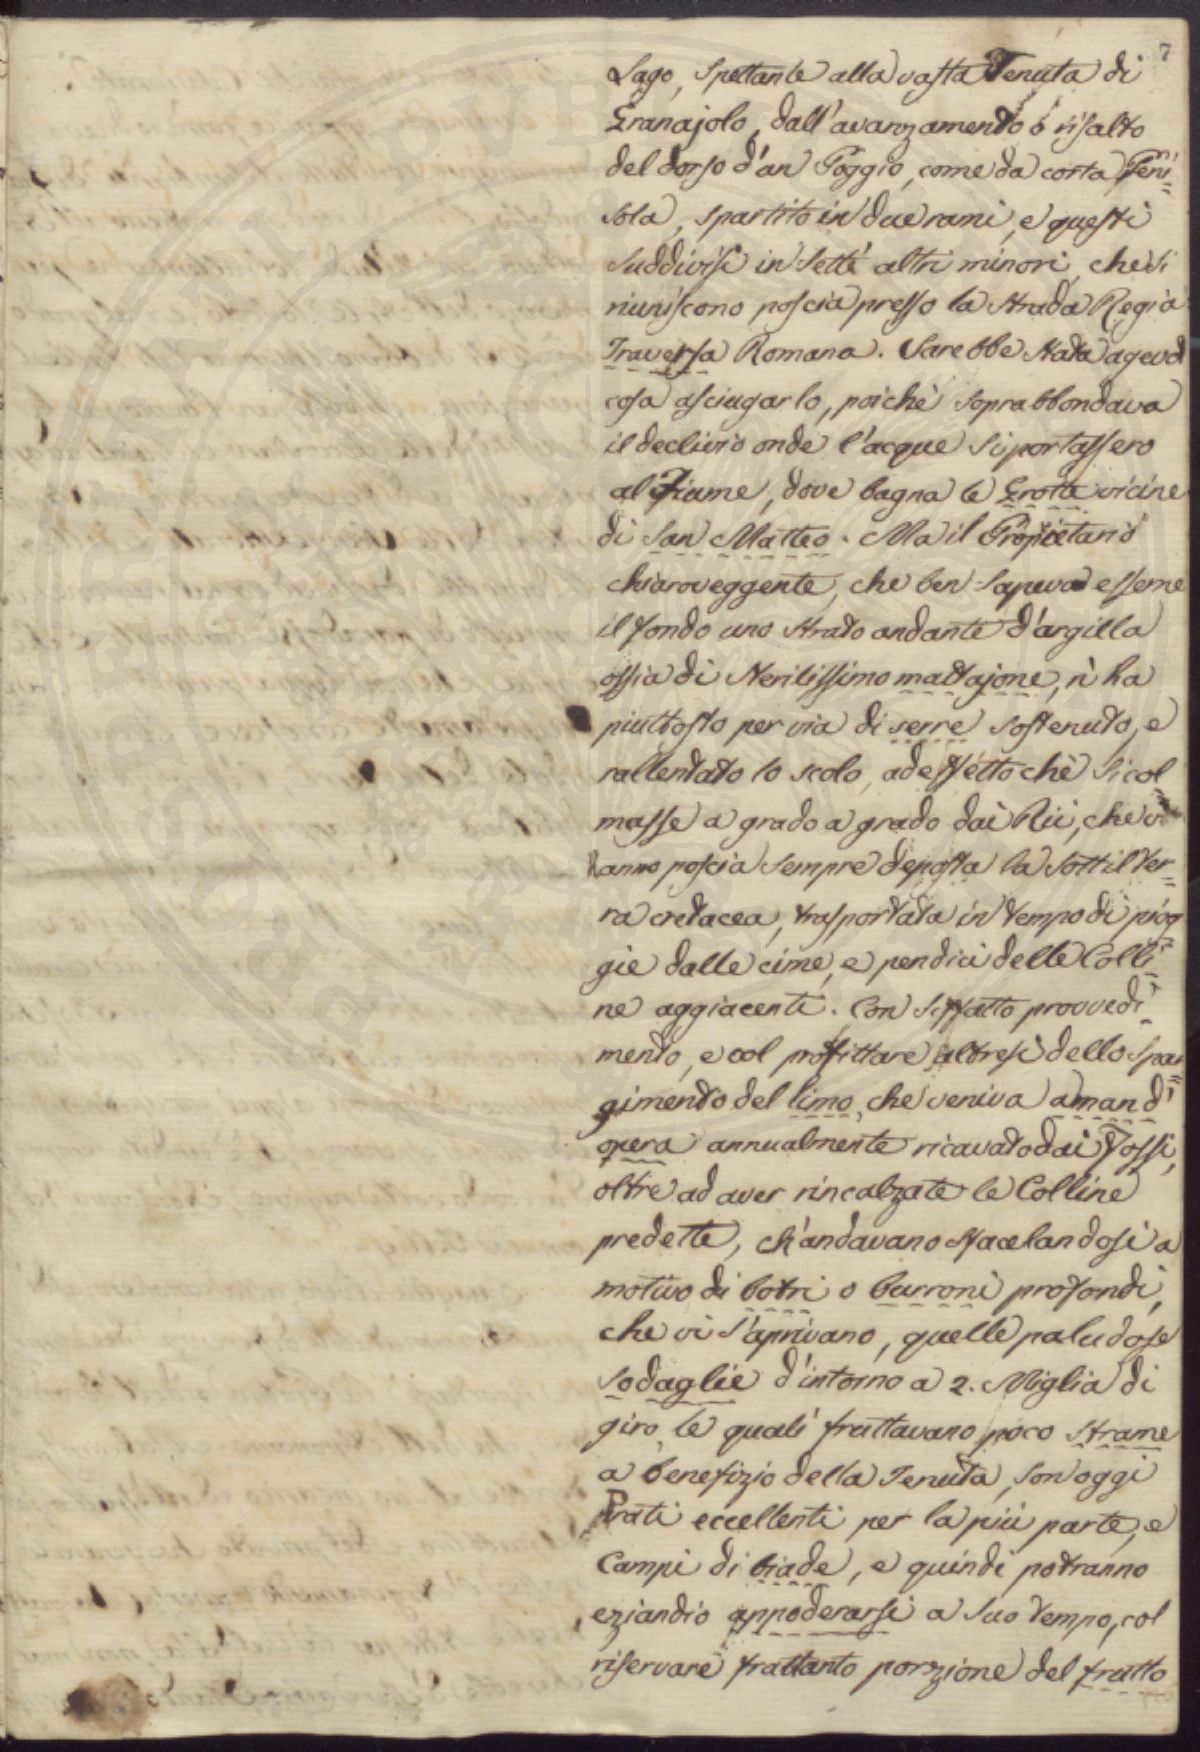 7
Lago, spettante alla vasta Tenuta di
Granajolo, dall'avanzamento o risalto
del dorso d'un Poggio, come da corta Peni=
sola, spartito in due rami, e questi
suddivisi in sette altri minori, che si
riuniscono poscia presso la Strada Regia
Traversa Romana. Sarebbe stata agevol
cosa asciugarlo, poichè soprabbondava
il declivio onde l'acque si portassero
al Fiume, dove bagna le Grotte vicine
di San Matteo. Ma il Propietario
chiaroveggente, che ben sapeva esserne
il fondo uno strato andante d'argilla
ossia di sterilissimo mattajone, n'ha
piuttosto per via di serre sostenuto, e
rallentato lo scolo, ad effetto chè si col=
masse a grado a grado dai Rii, che vi
hanno poscia sempre deposta la sottil ter=
ra cretacea, trasportata in tempo di piog=
gie dalle cime, e pendici delle Colli=
ne aggiacenti. Con siffatto provvedi=
mento, e col profittare altresì dello spar=
gimento del limo, che veniva a man d'
opera annualmente ricavato dai Fossi,
oltre ad aver rincalzate le Colline
predette, ch'andavano sfacelandosi a
motivo di botri o burroni profondi,
che vi s'aprivano, quelle paludose
sodaglie d'intorno a 2. Miglia di
giro, le quali fruttavano poco strame
a benefizio della Tenuta, son oggi
Prati eccellenti per la più parte, e
Campi di biade, e quindi potranno
eziandio appoderarsi a suo tempo, col
riservare frattanto porzione del frutto